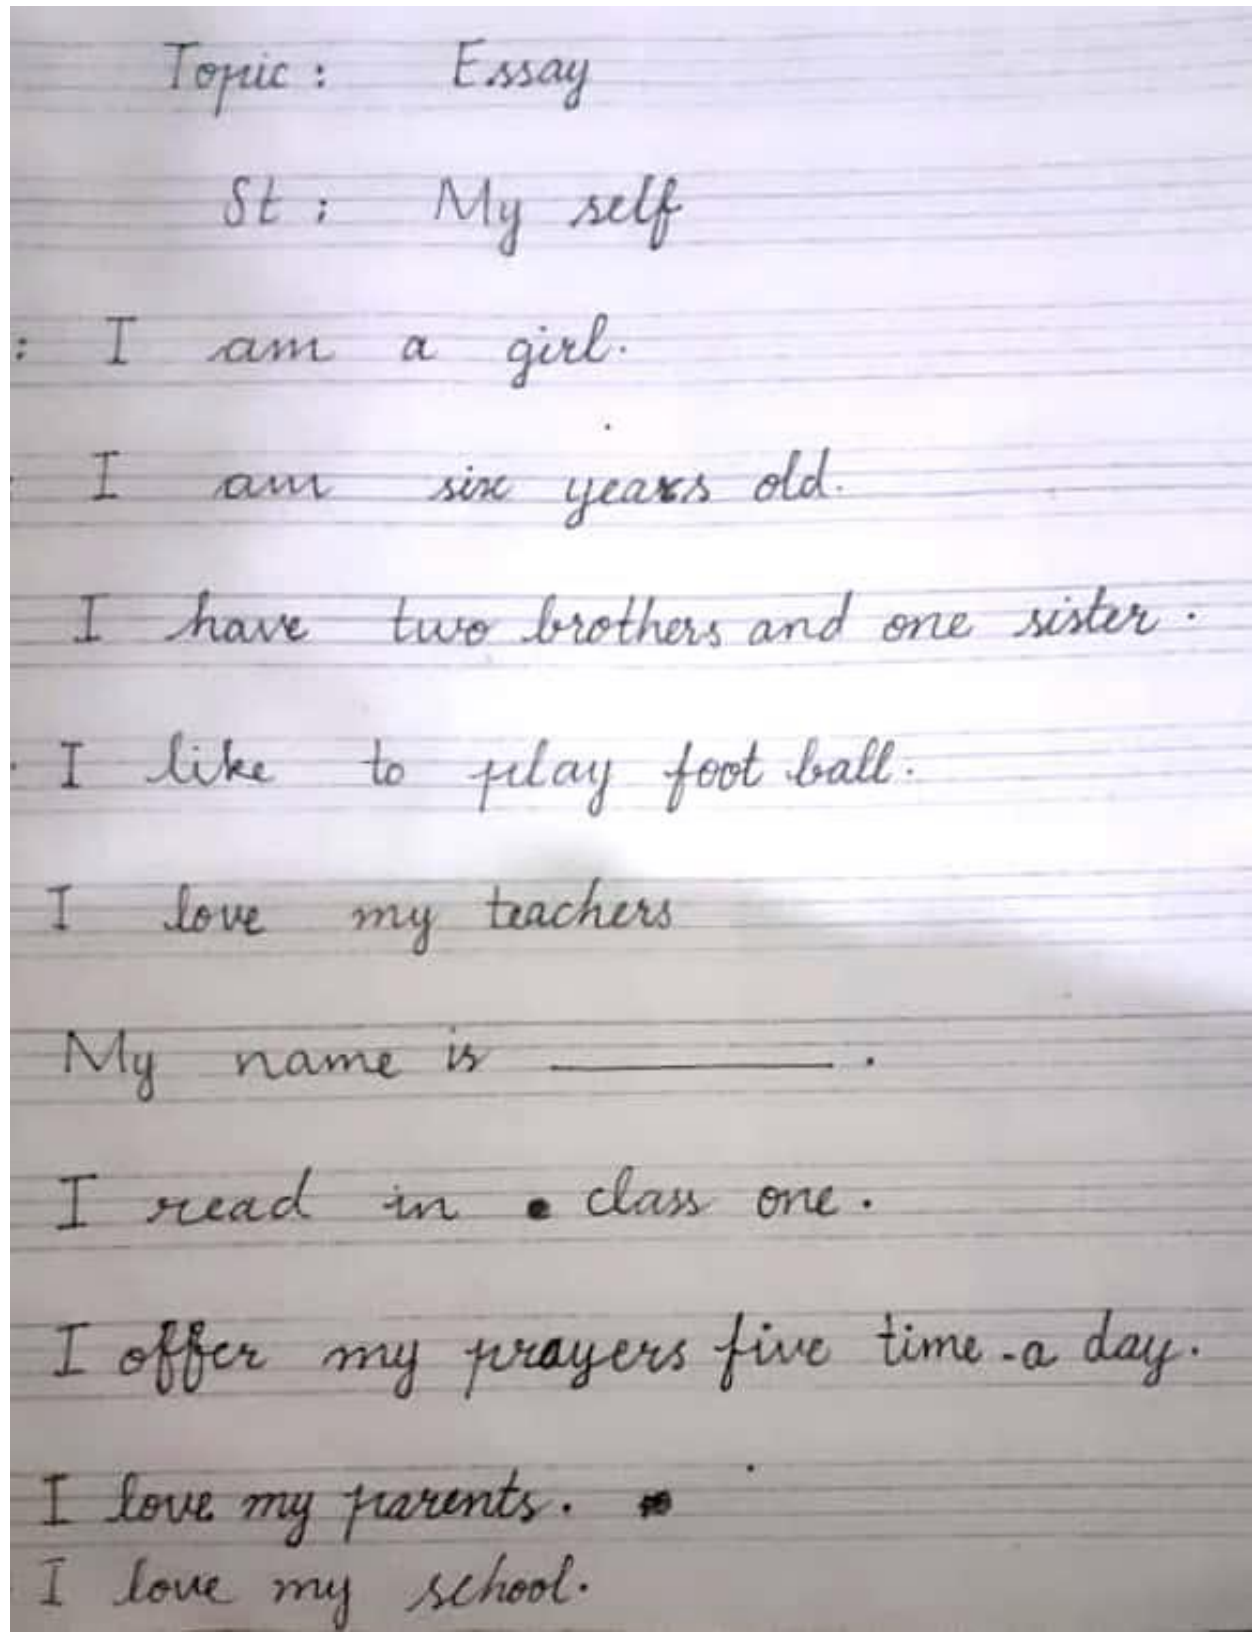 Topic : Essay
St : My self
: I am a girl.
I am six years old.
I have two brothers and one sister.
I like to play foot ball.
I love my teachers
My name is ________ .
I read in class one.
I offer my prayers five time a day.
I love my parents.
I love my school.